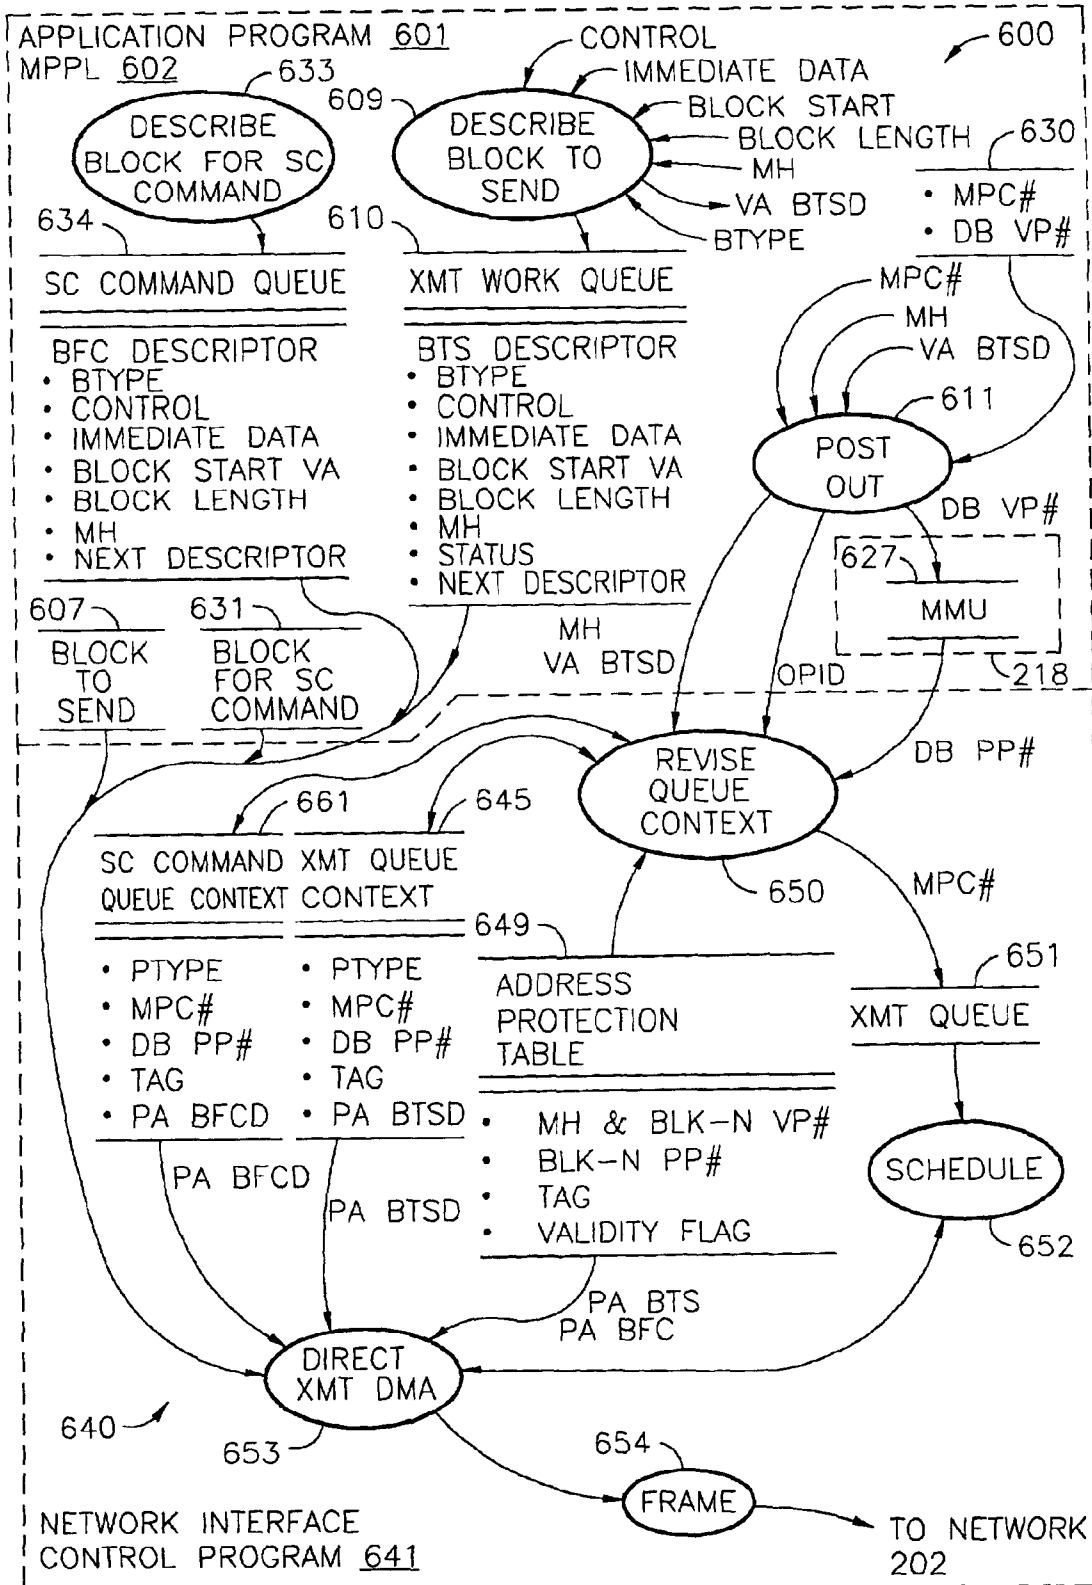 APPLICATION PROGRAM 601
MPPL 602
633
DESCRIBE
BLOCK FOR SC
COMMAND
634
SC COMMAND QUEUE
BFC DESCRIPTOR
• BTYPE
• CONTROL
• IMMEDIATE DATA
• BLOCK START VA
• BLOCK LENGTH
• MH
• NEXT DESCRIPTOR
609
DESCRIBE
BLOCK TO
SEND
CONTROL
IMMEDIATE DATA
BLOCK START
BLOCK LENGTH
MH
VA BTSD
BTYPE
600
610
XMT WORK QUEUE
BTS DESCRIPTOR
• BTYPE
• CONTROL
• IMMEDIATE DATA
• BLOCK START VA
• BLOCK LENGTH
• MH
• STATUS
• NEXT DESCRIPTOR
630
• MPC#
• DB VP#
MPC#
MH
VA BTSD
611
POST
OUT
DB VP#
627
MMU
218
607
BLOCK
TO
SEND
631
BLOCK
FOR SC
COMMAND
MH
VA BTSD
OPID
DB PP#
REVISE
QUEUE
CONTEXT
650
661
SC COMMAND
QUEUE CONTEXT
• PTYPE
• MPC#
• DB PP#
• TAG
• PA BFCD
645
XMT QUEUE
CONTEXT
• PTYPE
• MPC#
• DB PP#
• TAG
• PA BTSD
649
ADDRESS
PROTECTION
TABLE
• MH & BLK-N VP#
• BLK-N PP#
• TAG
• VALIDITY FLAG
MPC#
651
XMT QUEUE
SCHEDULE
652
PA BFCD
PA BTSD
PA BTS
PA BFC
DIRECT
XMT DMA
653
640
654
FRAME
TO NETWORK
202
NETWORK INTERFACE
CONTROL PROGRAM 641